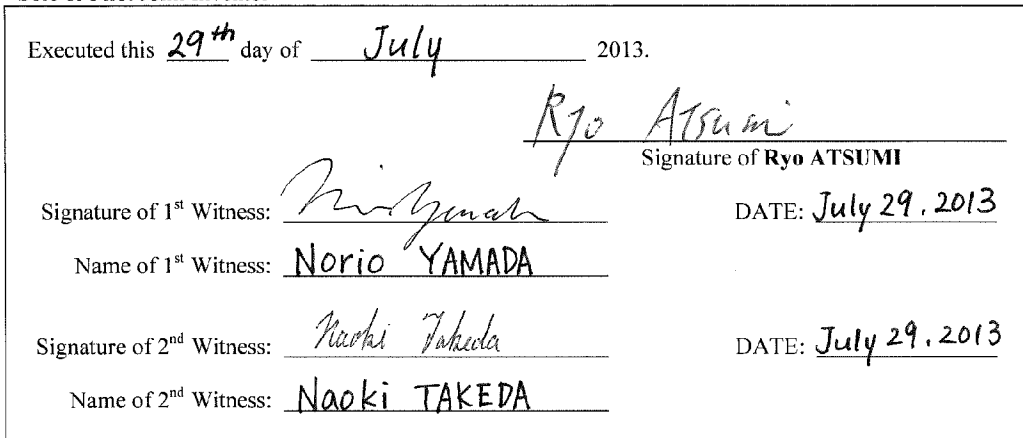 Executed this 29th day of July 2013.
Ryo Atsumi
Signature of Ryo ATSUMI
Signature of 1st Witness: DATE: July 29. 2013
Name of 1st Witness: Norio YAMADA
Signature of 2nd Witness: Naoki Takeda DATE: July 29. 2013
Name of 2nd Witness: Naoki TAKEDA